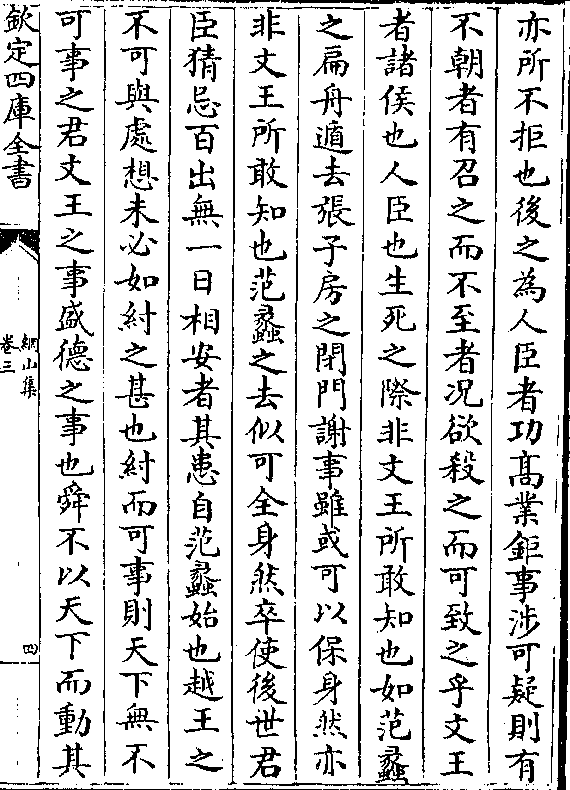 亦所不拒也後之為人臣者功髙業鉅事渉可疑則有
不朝者有召之而不至者况欲殺之而可致之乎文王
者諸侯也人臣也生死之際非文王所敢知也如范蠡
之扁舟遁去張子房之閉門謝事雖或可以保身然亦
非文王所敢知也范蠡之去似可全身然卒使後世君
臣猜忌百出無一日相安者其患自范蠡始也越王之
不可與處想未必如紂之甚也紂而可事則天下無不
可事之君文王之事盛德之事也舜不以天下而動其
欽定四庫全書
網山集
卷三
四